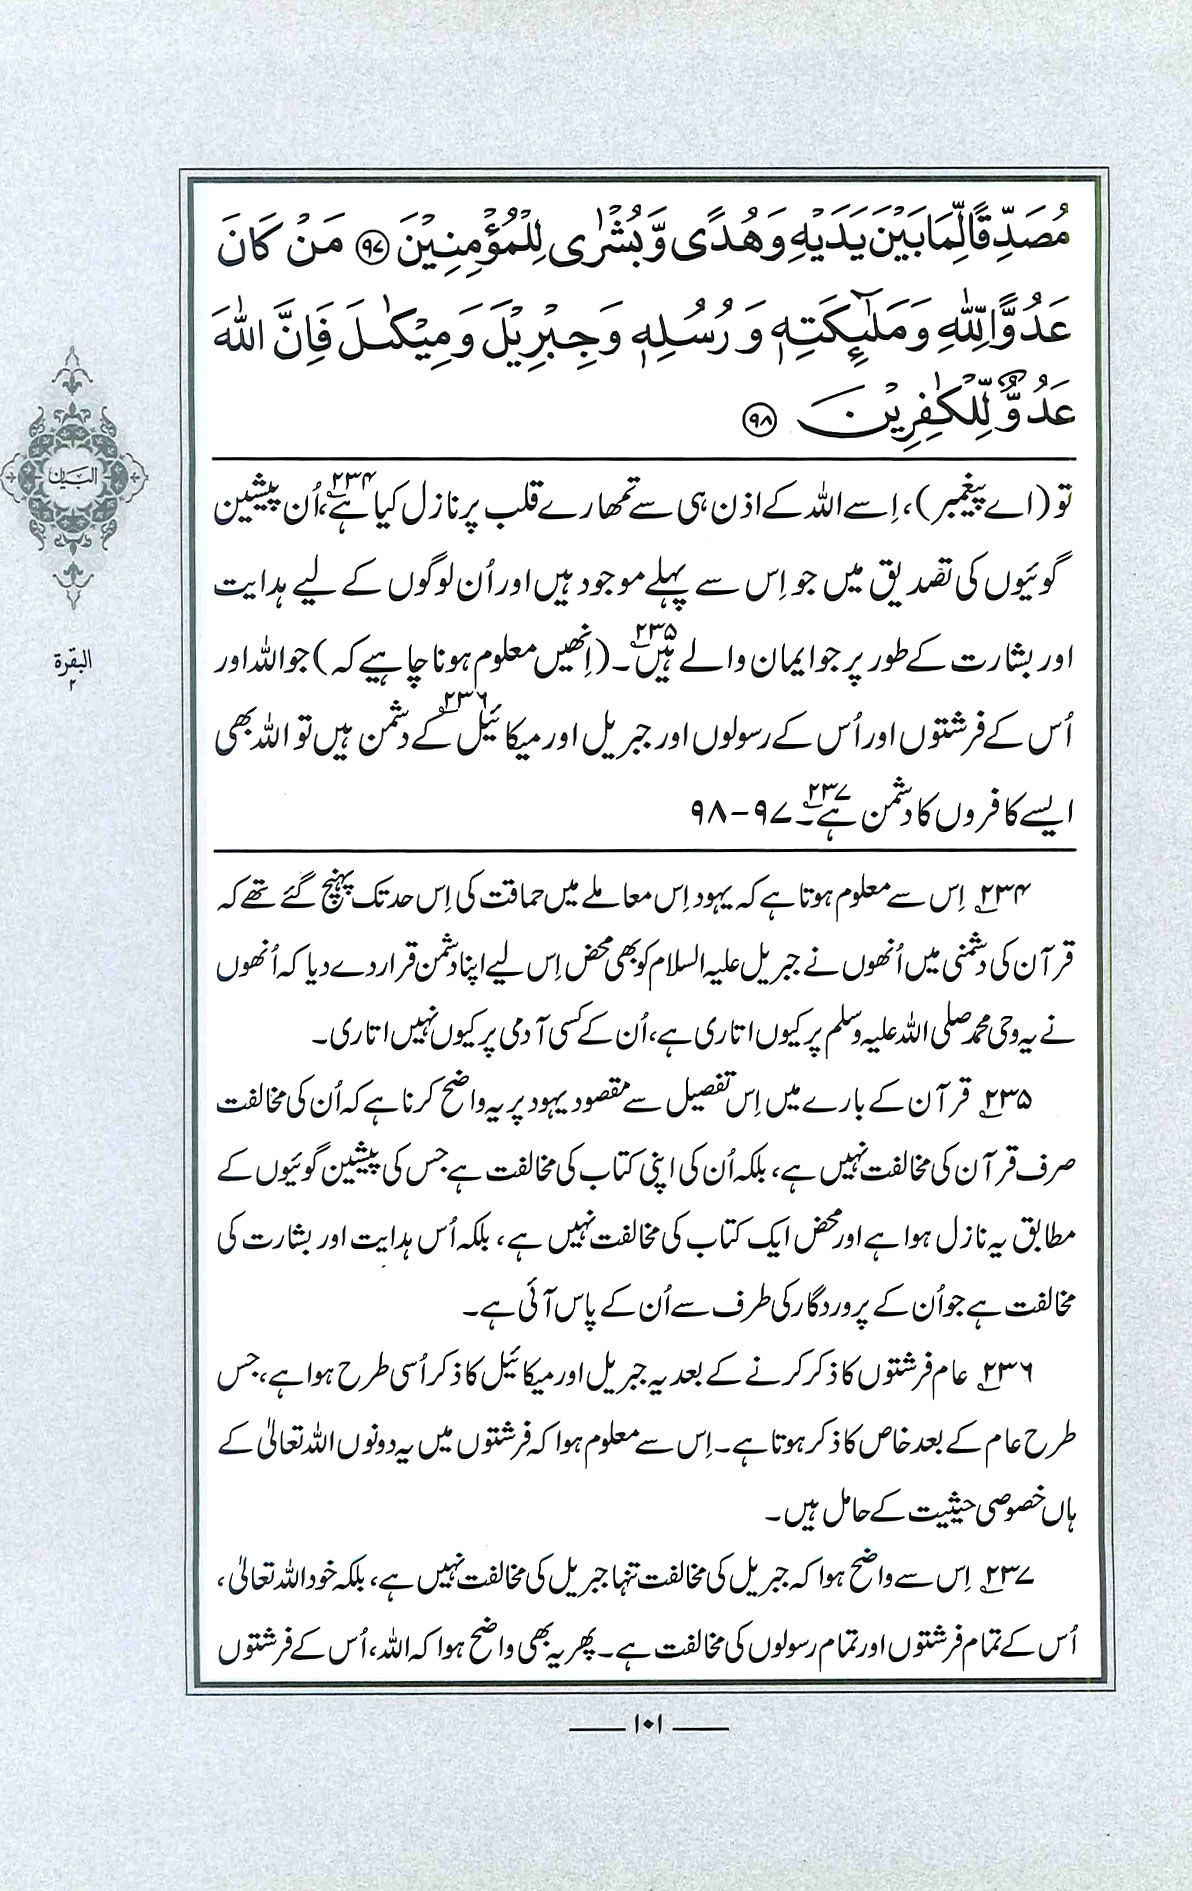 مُصَدِّقًا لِّمَا بَيْنَ يَدَيْهِ وَهُدًى وَّبُشْرٰى لِلْمُؤْمِنِيْنَ ﴿۹۷﴾ مَنْ كَانَ
عَدُوًّا لِّلّٰهِ وَمَلٰٓئِكَتِهٖ وَرُسُلِهٖ وَجِبْرِيْلَ وَمِيْكٰىلَ فَاِنَّ اللّٰهَ
عَدُوٌّ لِّلْكٰفِرِيْنَ ﴿۹۸﴾
تو (اے پیغمبر)، اِسے اللہ کے اذن ہی سے تمھارے قلب پر نازل کیا ہے،۲۳۴ اُن پیشین
گوئیوں کی تصدیق میں جو اِس سے پہلے موجود ہیں اور اُن لوگوں کے لیے ہدایت
اور بشارت کے طور پر جو ایمان والے ہیں۔۲۳۵ (اِنھیں معلوم ہونا چاہیے کہ) جو اللہ اور
اُس کے فرشتوں اور اُس کے رسولوں اور جبریل اور میکائیل۲۳۶ کے دشمن ہیں تو اللہ بھی
ایسے کافروں کا دشمن ہے۔۲۳۷ ۹۷-۹۸
۲۳۴؎ اِس سے معلوم ہوتا ہے کہ یہود اِس معاملے میں حماقت کی اِس حد تک پہنچ گئے تھے کہ
قرآن کی دشمنی میں اُنھوں نے جبریل علیہ السلام کو بھی محض اِس لیے اپنا دشمن قرار دے دیا کہ اُنھوں
نے یہ وحی محمد صلی اللہ علیہ وسلم پر کیوں اتاری ہے، اُن کے کسی آدمی پر کیوں نہیں اتاری۔
۲۳۵؎ قرآن کے بارے میں اِس تفصیل سے مقصود یہود پر یہ واضح کرنا ہے کہ اُن کی مخالفت
صرف قرآن کی مخالفت نہیں ہے، بلکہ اُن کی اپنی کتاب کی مخالفت ہے جس کی پیشین گوئیوں کے
مطابق یہ نازل ہوا ہے اور محض ایک کتاب کی مخالفت نہیں ہے، بلکہ اُس ہدایت اور بشارت کی
مخالفت ہے جو اُن کے پروردگار کی طرف سے اُن کے پاس آئی ہے۔
۲۳۶؎ عام فرشتوں کا ذکر کرنے کے بعد یہ جبریل اور میکائیل کا ذکر اُسی طرح ہوا ہے، جس
طرح عام کے بعد خاص کا ذکر ہوتا ہے۔ اِس سے معلوم ہوا کہ فرشتوں میں یہ دونوں اللہ تعالیٰ کے
ہاں خصوصی حیثیت کے حامل ہیں۔
۲۳۷؎ اِس سے واضح ہوا کہ جبریل کی مخالفت تنہا جبریل کی مخالفت نہیں ہے، بلکہ خود اللہ تعالیٰ،
اُس کے تمام فرشتوں اور تمام رسولوں کی مخالفت ہے۔ پھر یہ بھی واضح ہوا کہ اللہ، اُس کے فرشتوں
البیان
البقرة
۲
۱۰۱